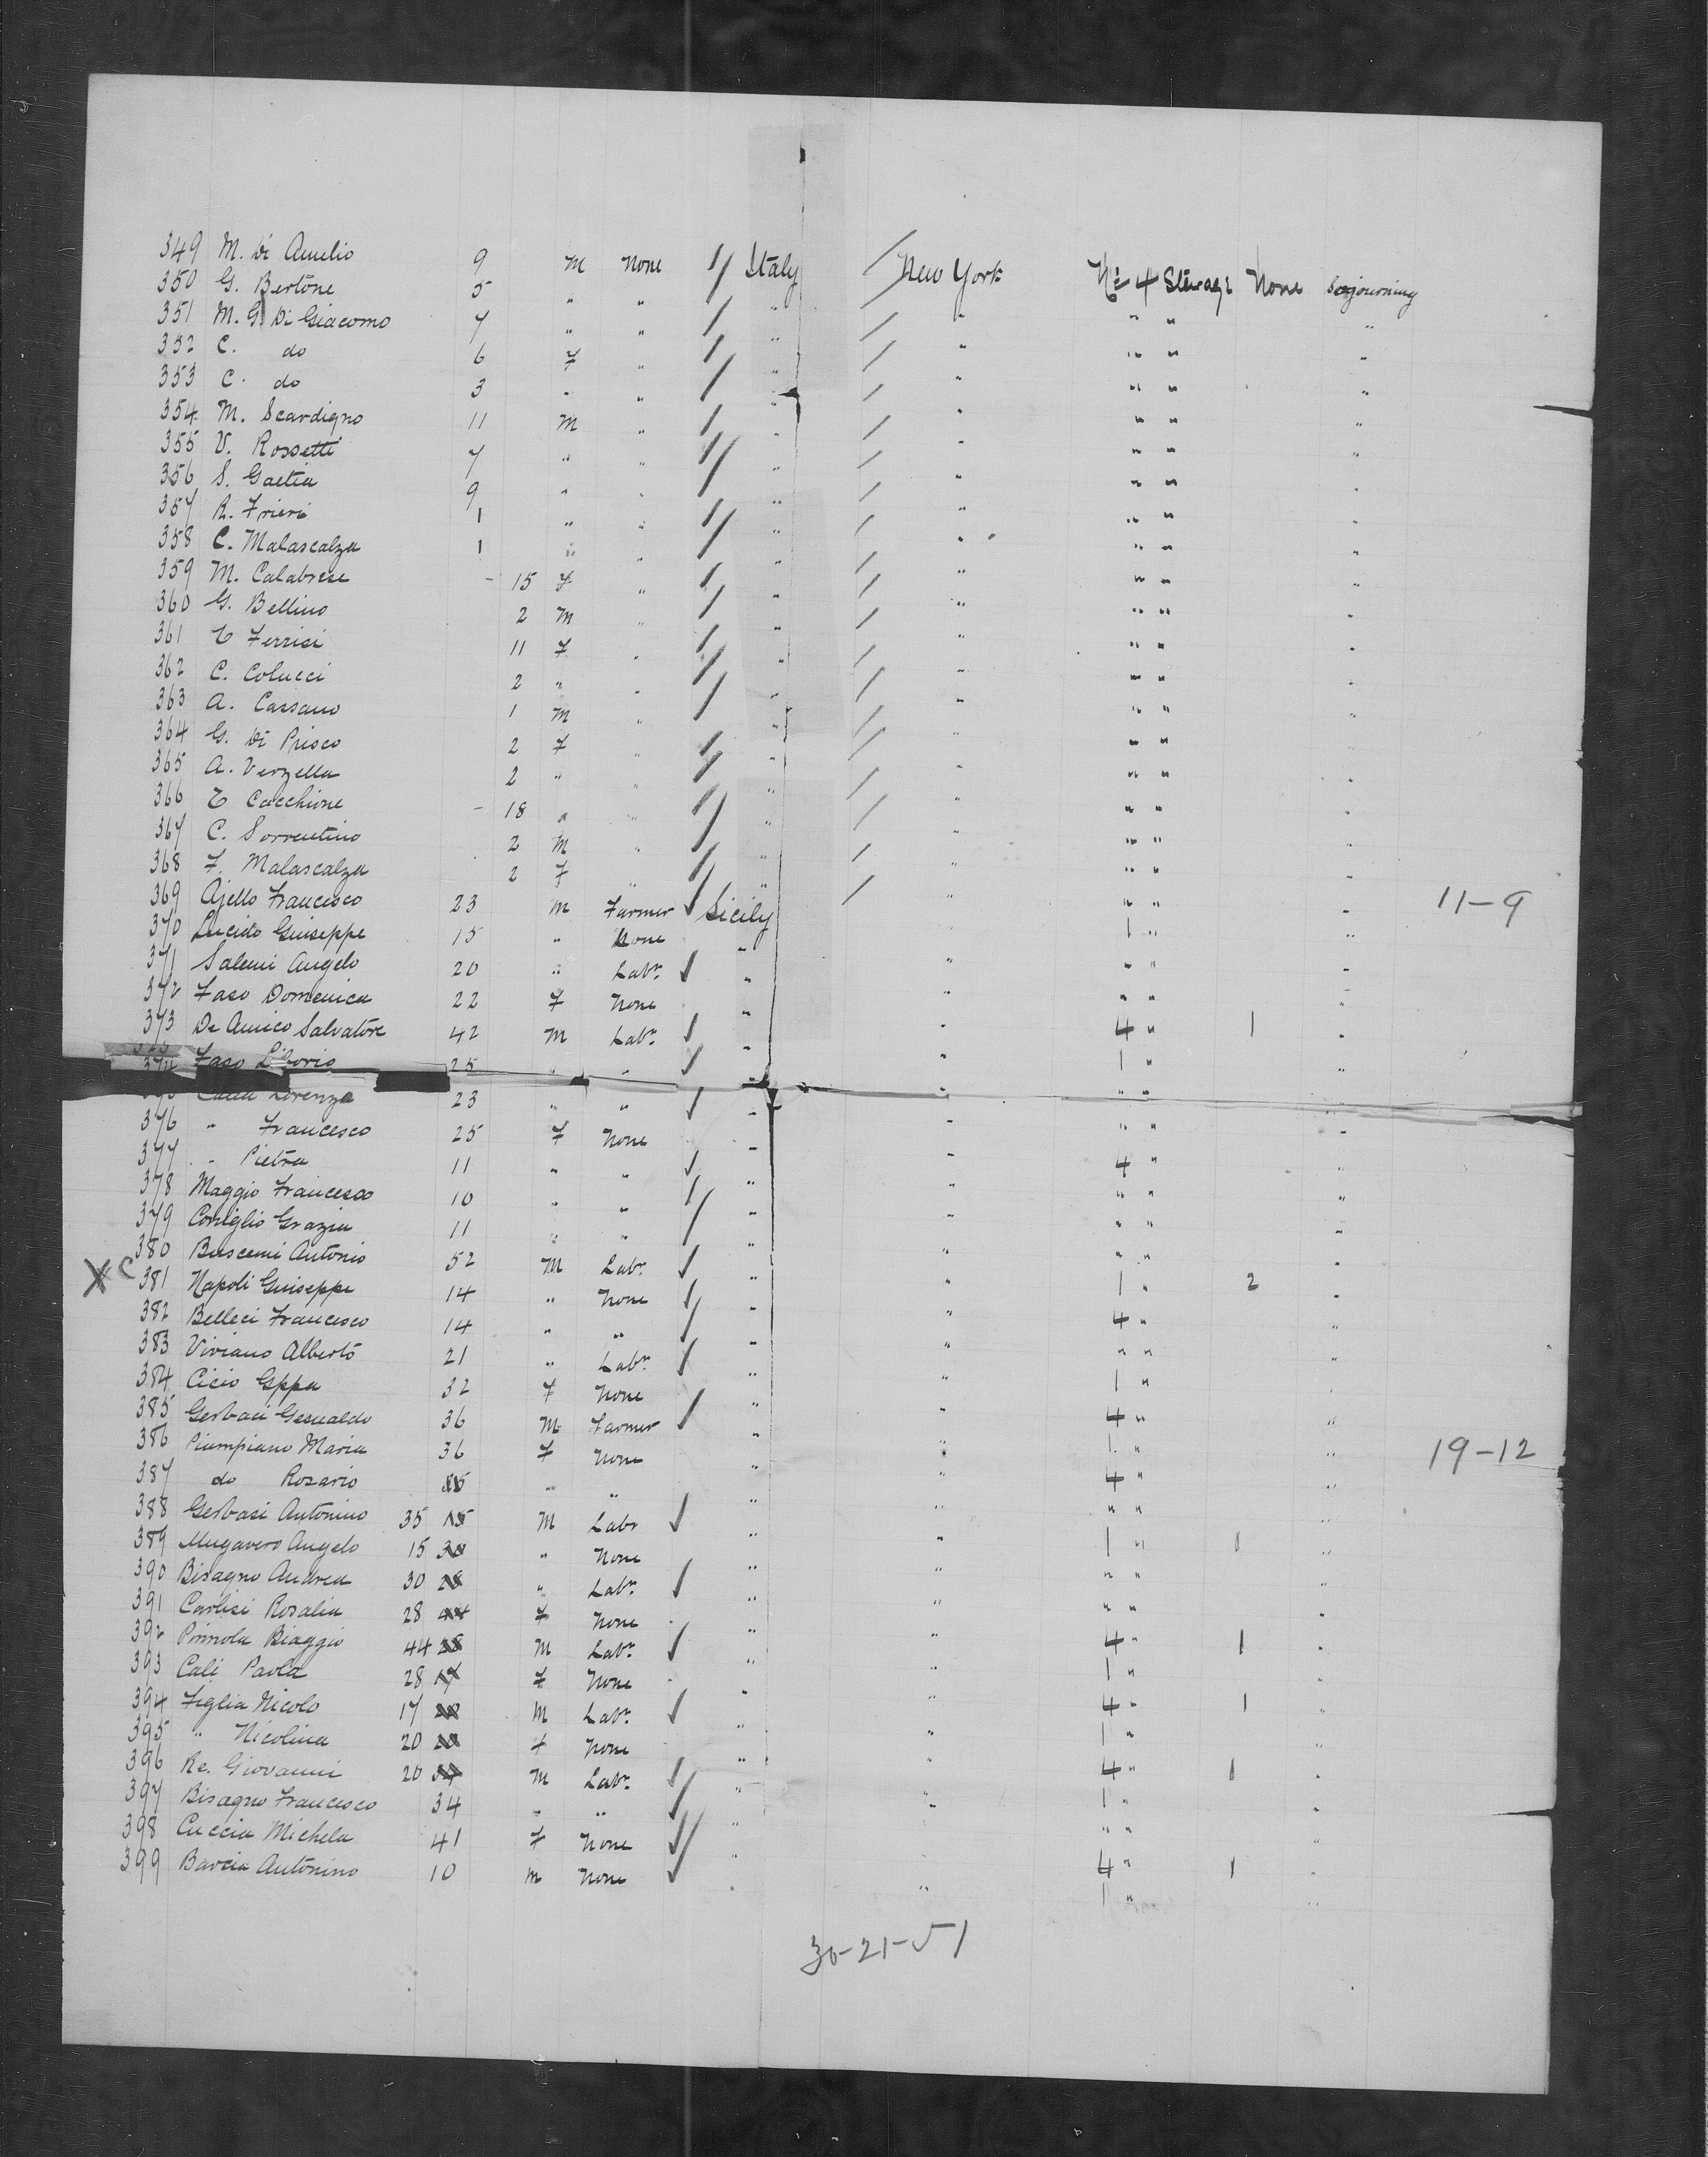 349 M. Di Amelio 9 M None / Italy / New York No 4 Steerage None Sojourning
350 G. Bertone 5 " " / " / " " " "
351 M. G. Di Giacomo 7 " " / " / " " " "
352 C. do 6 F " / " / " " " "
353 C. do 3 " " / " / " " " "
354 M. Scardigno 11 M " / " / " " " "
355 V. Rossetti 7 " " / " / " " " "
356 S. Gaetia 9 " " / " / " " " "
357 R. Frieri 1 " " / " / " " " "
358 C. Malascalza 1 " " / " / " " " "
359 M. Calabrese - 15 F " / " / " " " "
360 G. Bellino 2 M " / " / " " " "
361 Ferrisi 11 F " / " / " " " "
362 C. Colucci 2 " " / " / " " " "
363 A. Cassano 1 M " / " / " " " "
364 G. Di Prisco 2 F " / " / " " " "
365 A. Verzella 2 " " / " / " " " "
366 Cacchione - 18 " " / " / " " " "
367 C. Sorrentino 2 M " / " / " " " "
368 F. Malascalza 2 F " / " / " " " "
369 Ajello Francesco 23 M Farmer ✓ Sicily " " " " 11-9
370 Lucido Giuseppe 15 " None " " 1 " "
371 Salemi Angelo 20 " Labr. ✓ " " " " "
372 Faso Domenica 22 F None " " " " "
373 De Amico Salvatore 42 M Labr. ✓ " " 4 " 1 "
374 Faso Liborio 25 " " ✓ " " 1 " "
Lorenzo 23 " " ✓ " " " " "
376 " Francesco 25 F None " " " " "
377 " Pietra 11 " " ✓ " " 4 " "
378 Maggio Francesco 10 " " / " " " " "
379 Coniglio Grazia 11 " " / " " " " "
380 Buscemi Antonio 52 M Labr. ✓ " " " " "
X C 381 Napoli Giuseppe 14 " None ✓ " " 1 " 2 "
382 Belleci Francesco 14 " " ✓ " " 4 " "
383 Viviano Alberto 21 " Labr. ✓ " " " " "
384 Cicio Gppa 32 F None " " 1 " "
385 Gerbasi Gesualdo 36 M Farmer ✓ " " 4 " "
386 Piampiano Maria 36 F None " " 1 " " 19-12
387 do Rosario " " " " 4 " "
388 Gerbasi Antonino 35 15 M Labr ✓ " " " " "
389 Mugavero Angelo 15 30 " None " " 1 " 1 "
390 Bisagno Andrea 30 28 " Labr. ✓ " " " " "
391 Carlisi Rosalia 28 44 F None " " " " "
392 Pinnola Biaggio 44 28 M Labr. ✓ " " 4 " 1 "
393 Cali Paola 28 17 F None " " 1 " "
394 Figlia Nicolo 17 20 M Labr. ✓ " " 4 " 1 "
395 " Nicolina 20 20 F None " " 1 " "
396 Re. Giovanni 20 34 M Labr. ✓ " " 4 " 1 "
397 Bisagno Francesco 34 " " ✓ " " 1 " "
398 Cuccia Michela 41 F None ✓ " " " " "
399 Barcia Antonino 10 M None ✓ " " 4 " 1 "
1 " "
30-21-51